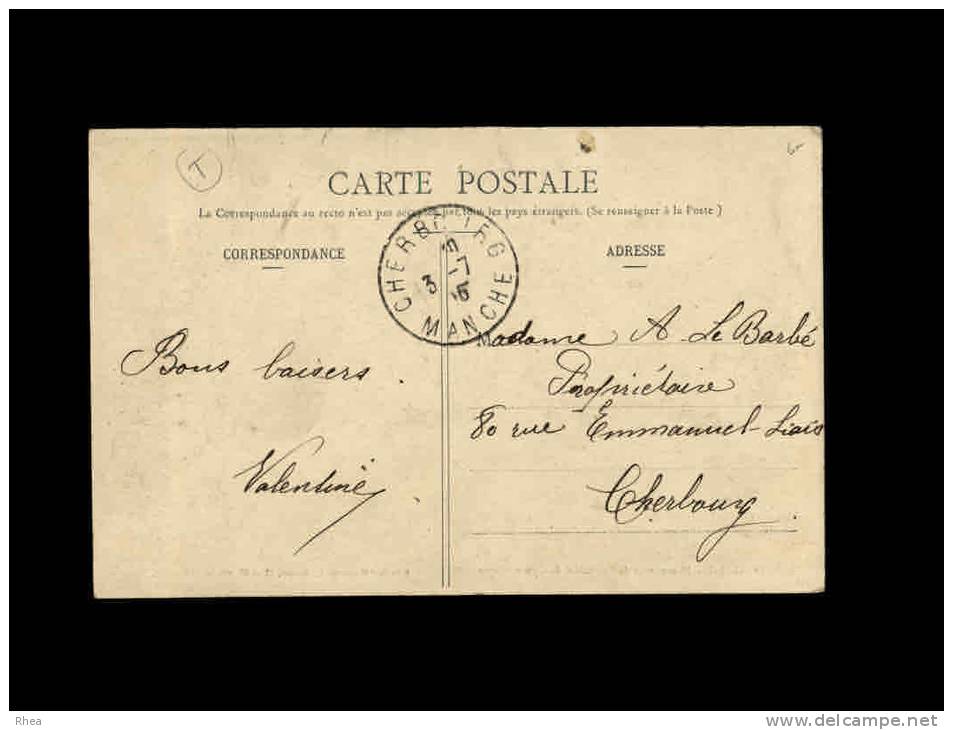 T
CARTE POSTALE
La Correspondance au recto n'est pas acceptée par tous les pays étrangers. (Se renseigner à la Poste)
CORRESPONDANCE
ADRESSE
CHERBOURG
MANCHE
Bons baisers.
Valentine
Madame A. Le Barbé
Propriétaire
80 rue Emmanuel-Liais
Cherbourg
Rhea
www.delcampe.net